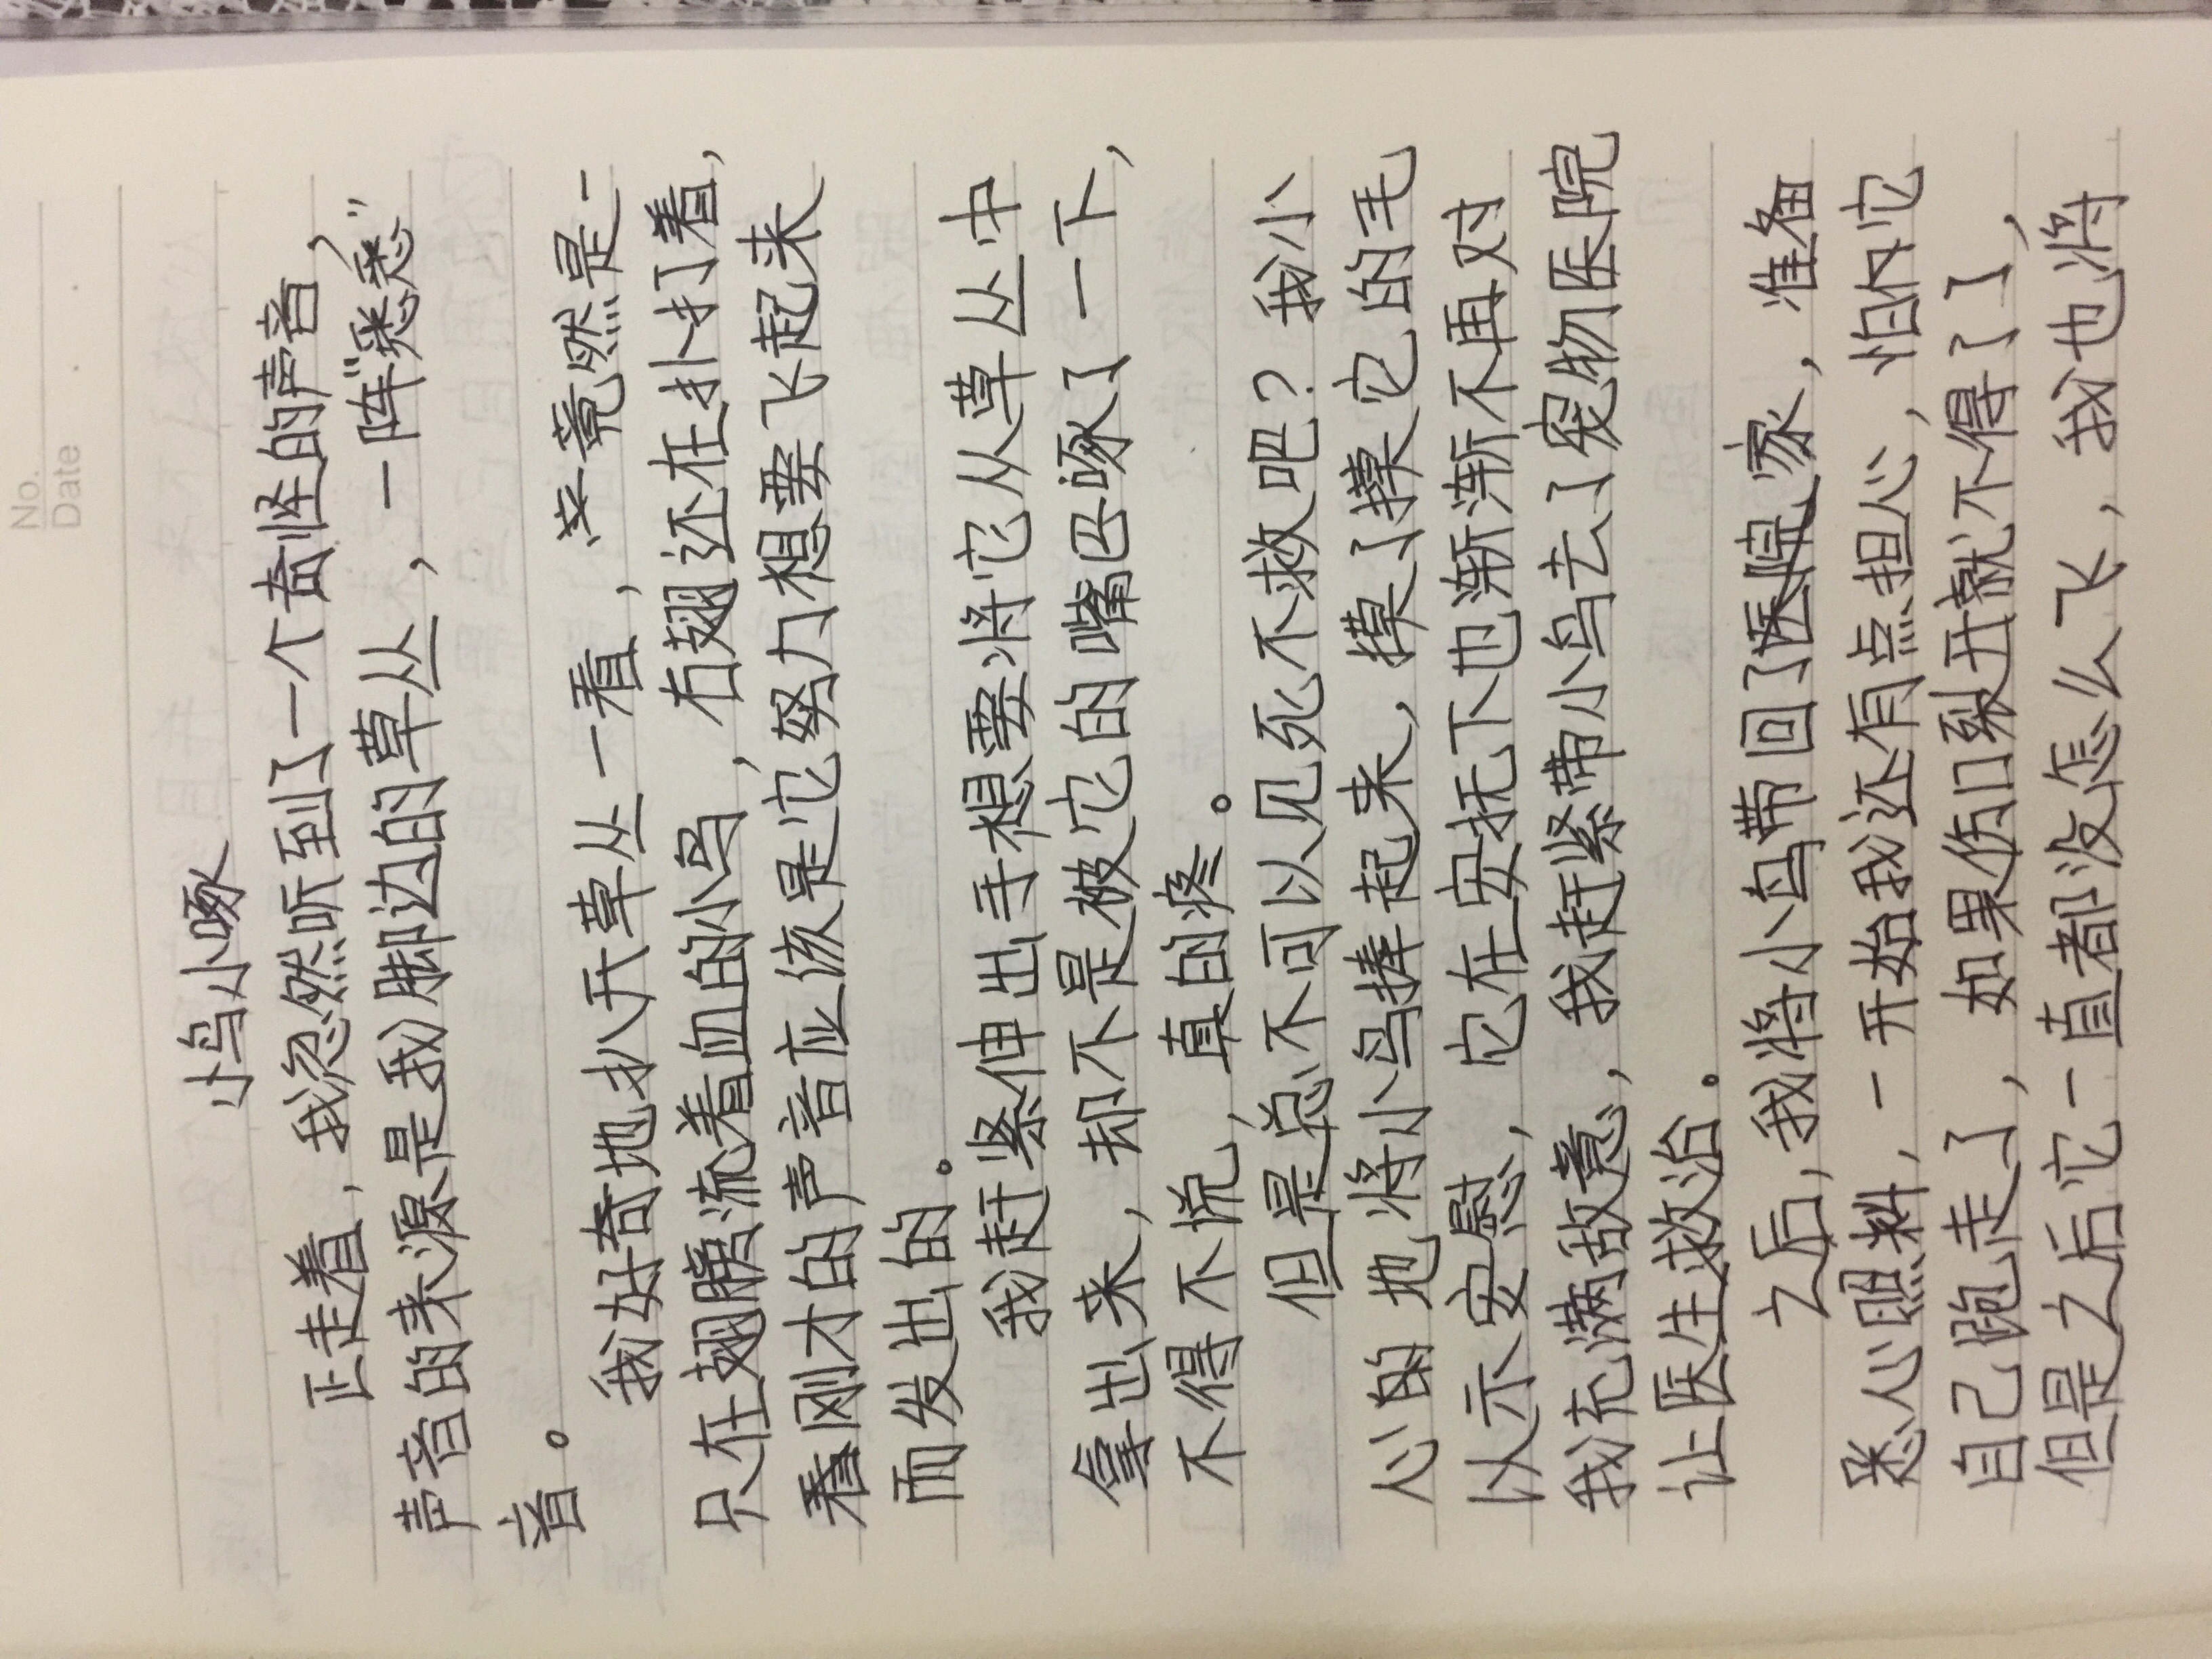 No.
Date
小鸟小啄
正走着，我忽然听到了一个奇怪的声音，
声音的来源是我脚边的草丛，一阵“悉悉”
音。
我好奇地扒开草丛一看，竟然是一
只在翅膀流着血的小鸟，右翅还在扑打着，
看刚才的声音应该是它努力想要飞起来
而发出的。
我赶紧伸出手想要将它从草丛中
拿出来，却不是被它的嘴巴啄了一下，
不得不说，真的疼。
但是总不可以见死不救吧？我小
心的地将小鸟捧起来，摸了摸它的毛
以示安慰，它在安抚下也渐渐不再对
我充满敌意，我赶紧带小鸟去了宠物医院
让医生救治。
之后，我将小鸟带回了家，准备
悉心照料，一开始我还有点担心，怕它
自己跑走了，如果伤口裂开就不得了了，
但是之后它一直都没怎么飞，我也将